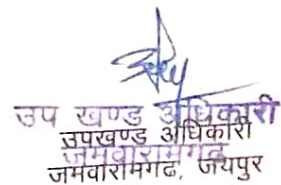 उप खण्ड अधिकारी
उपखण्ड अधिकारी
जमवारामगढ
जमवारामगढ, जयपुर